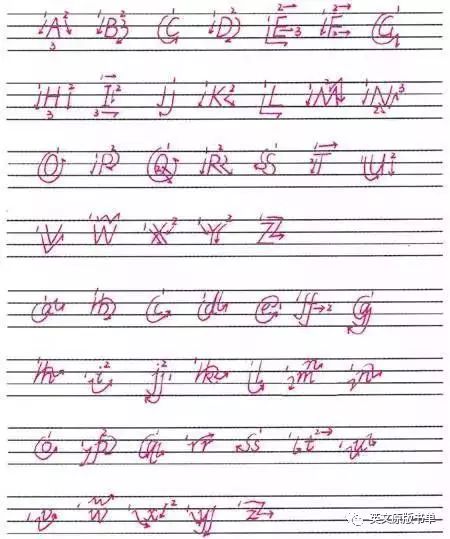 A B C D E F G
H I J K L M N
O P Q R S T U
V W X Y Z
a b c d e f g
h i j k l m n
o p q r s t u
v w x y z
英文原版书单